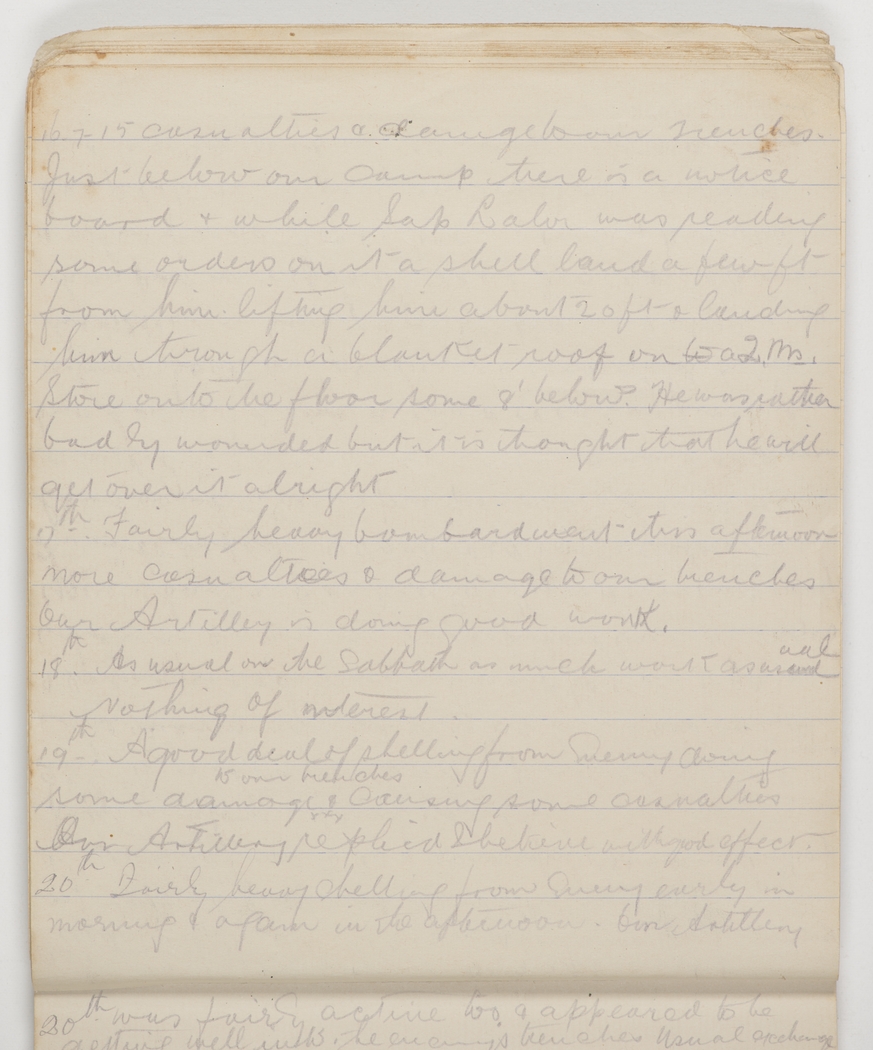 16-7-15 casualties & damage to our trenches.
Just below our Camp there is a notice
board & while Sap Lalor was reading
some orders on it a shell land a few ft
from him lifting him about 20 ft & landing
him through a blanket roof on to a Q. Ms.
Store onto the floor some 8' below. He was rather
badly wounded but it is thought that he will
get over it alright
17th. Fairly heavy bombardment this afternoon
more casualties & damage to our trenches
Our Artillery is doing good work.
18th. As usual on the Sabbath as much work as usual
Nothing of interest.
19th- A good deal of shelling from Enemy doing
to our trenches
some damage & causing some casualties
Our Artillery replied I believe with good effect.
20th Fairly heavy shelling from Enemy early in
morning & again in the afternoon. Our Artillery
20th was fairly active too & appeared to be
getting well into the enemy's trenches usual exchange